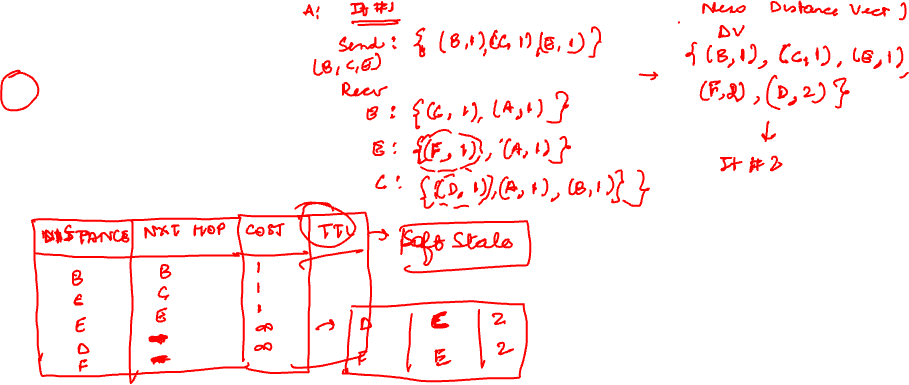 A: It #1
Send: { (B,1),(C,1),(E,1)}
(B,C,E)
Recv
B: {(C, 1), (A,1)}
E: {(F, 1), (A,1)}
C: {(D, 1),(A,1), (B,1)}}
→
New Distance Vect
DV
{(B,1), (C,1), (E,1),
(F,2), (D,2)}
↓
It #2
DISTANCE NXT HOP COST TTL → Soft State
B B 1
C C 1
E E 1
D ∞ → D C 2
F ∞ F E 2